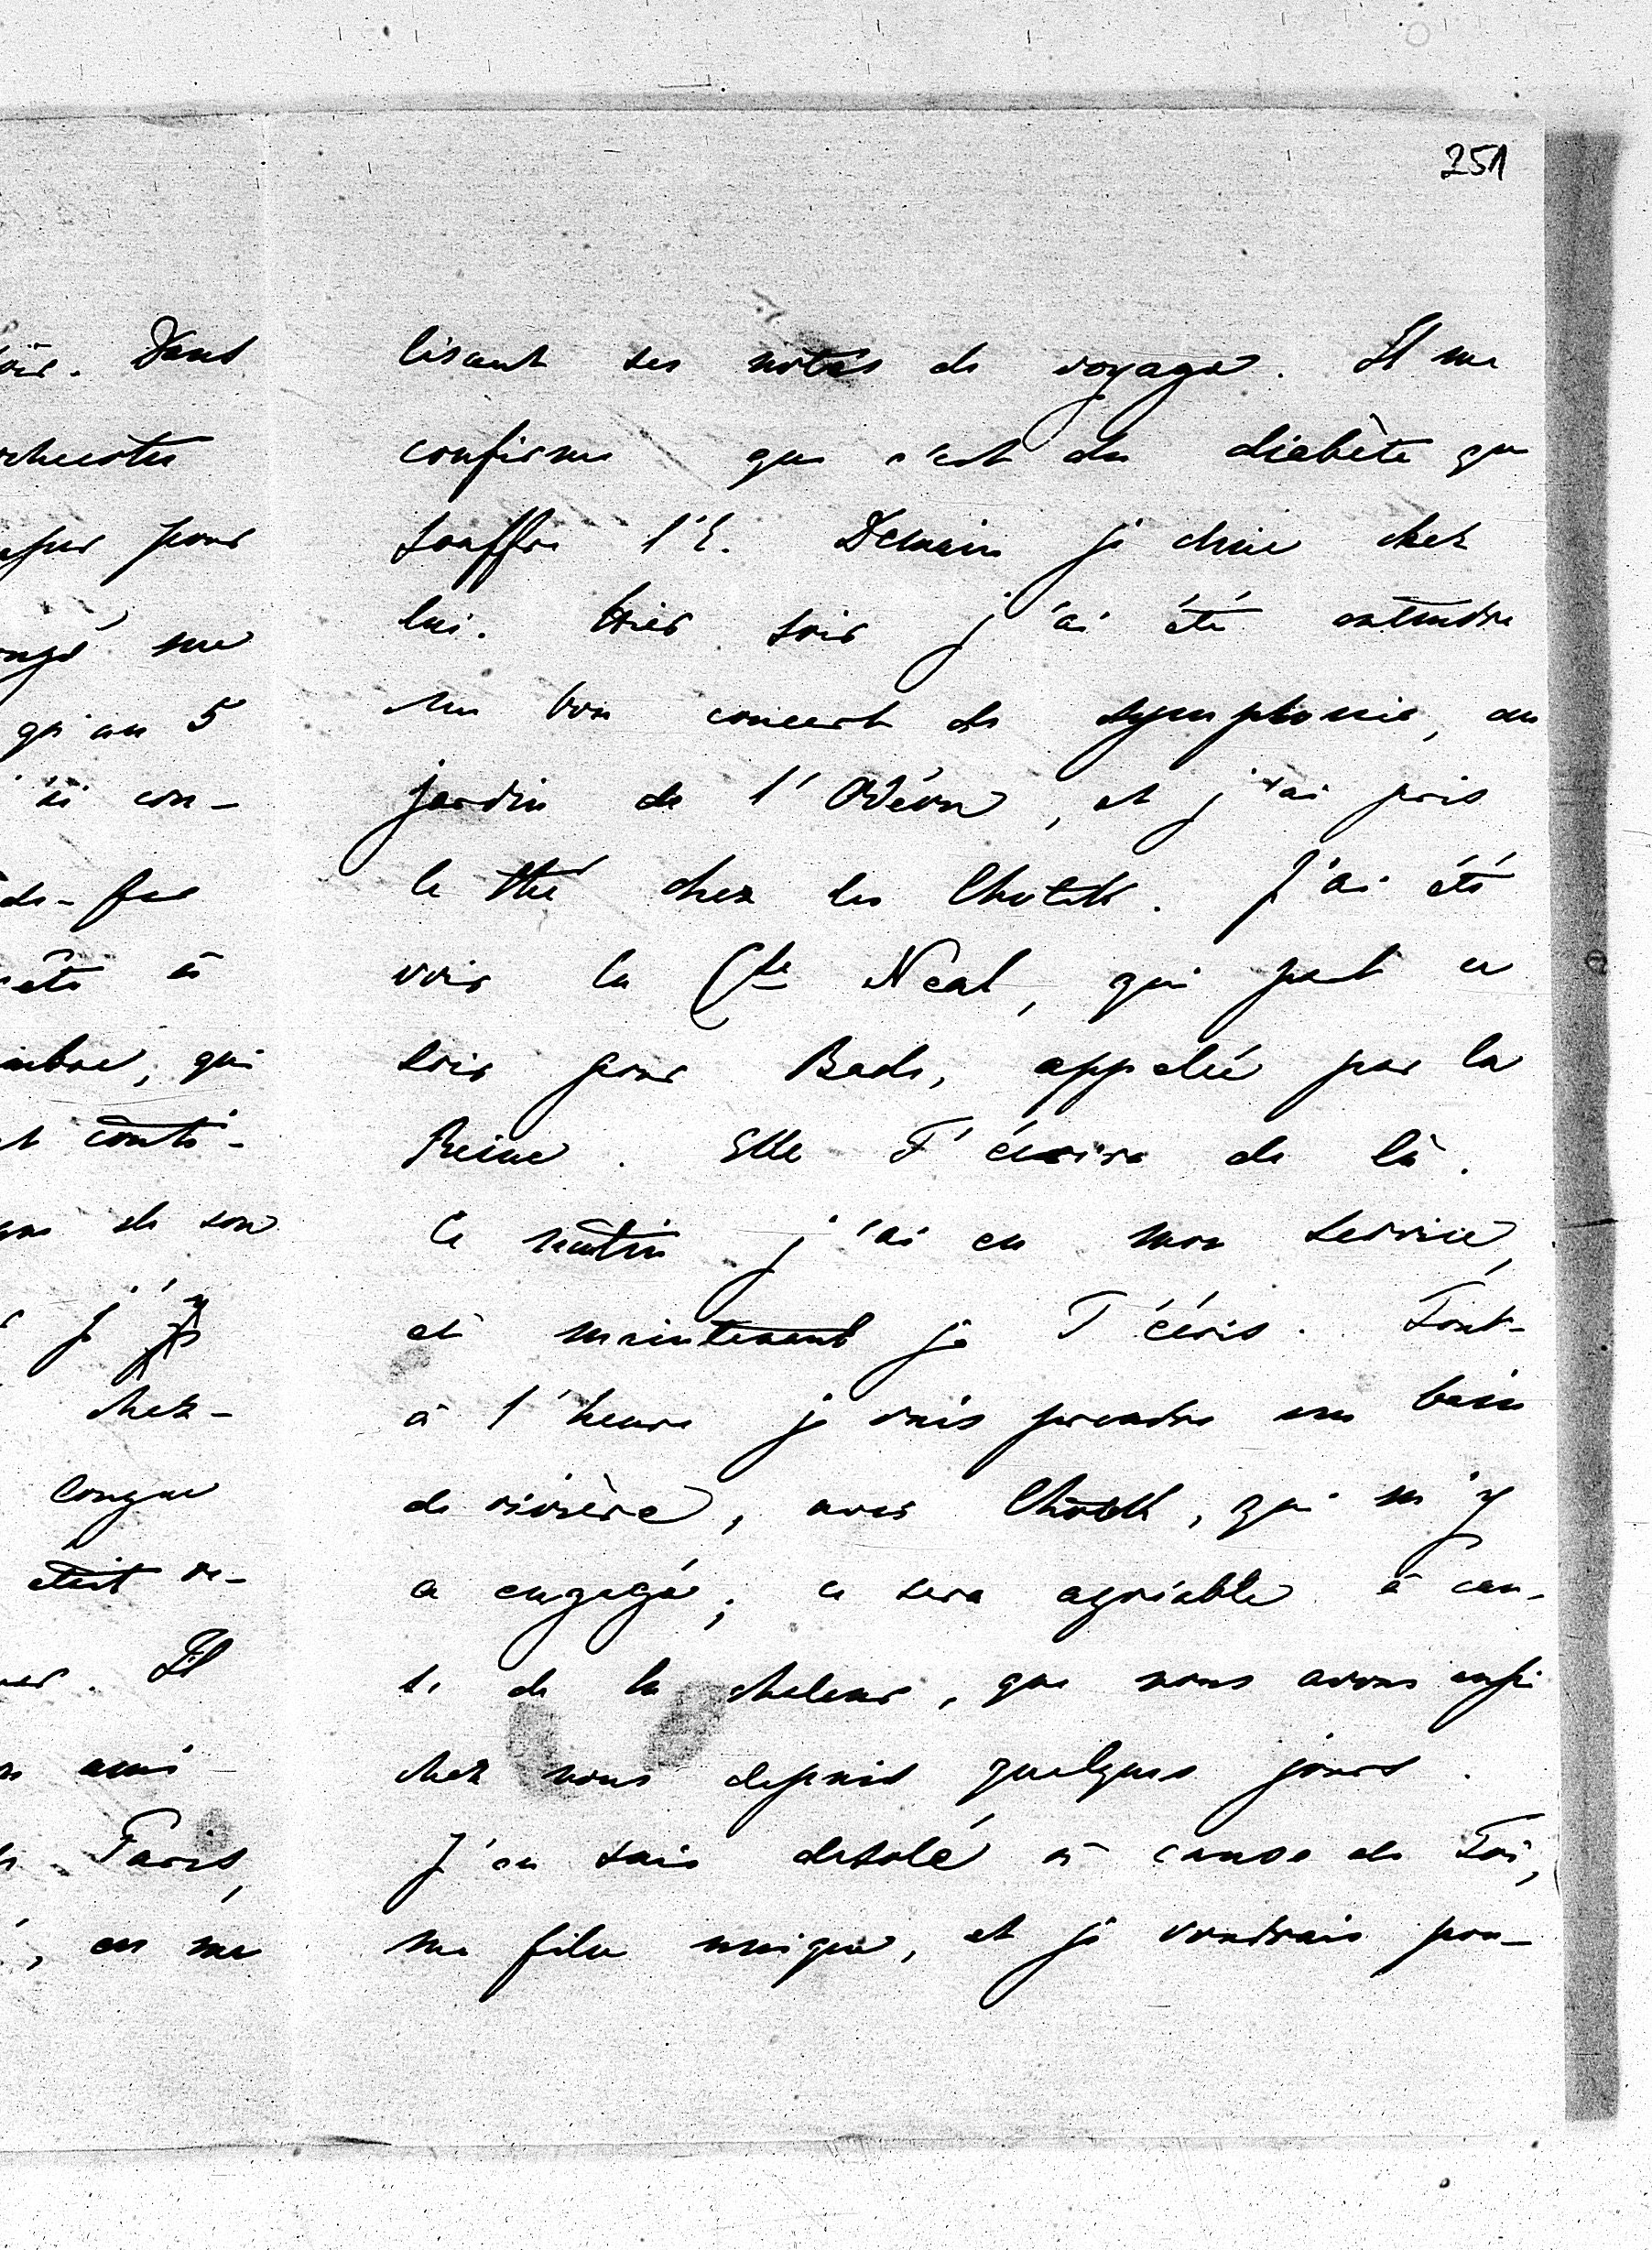 251
lisant ses notes de voyage. Il me
confirme que c'est du diabète que
souffre l'E. Demain je dine chez
lui. Hier soir j'ai été entendre
un bon concert de symphonie, au
jardin de l'Odéon, et j'ai pris
le thé chez les Chotek. J'ai été
voir la Cte Néal, qui part ce
soir pour Bade, appelée par la
Reine. Elle T'écrira de là.
Ce matin j'ai eu mon service,
et maintenant je T'écris. Tout-
à l'heure je vais prendre un bain
de rivière, avec Chotek, qui m'y
a engagé; ce sera agréable à cau-
se de la chaleur, que nous avons enfin
chez nous depuis quelques jours.
J'en suis desolé à cause de Toi,
ma fille unique, et je voudrais pou-
oir. Dans
pour
me
qu'au 5
con-
de-fer
à
embre, qui
conti-
de son
j'y
chez-
longue
etait re-
Il
ami
Paris,
, en me